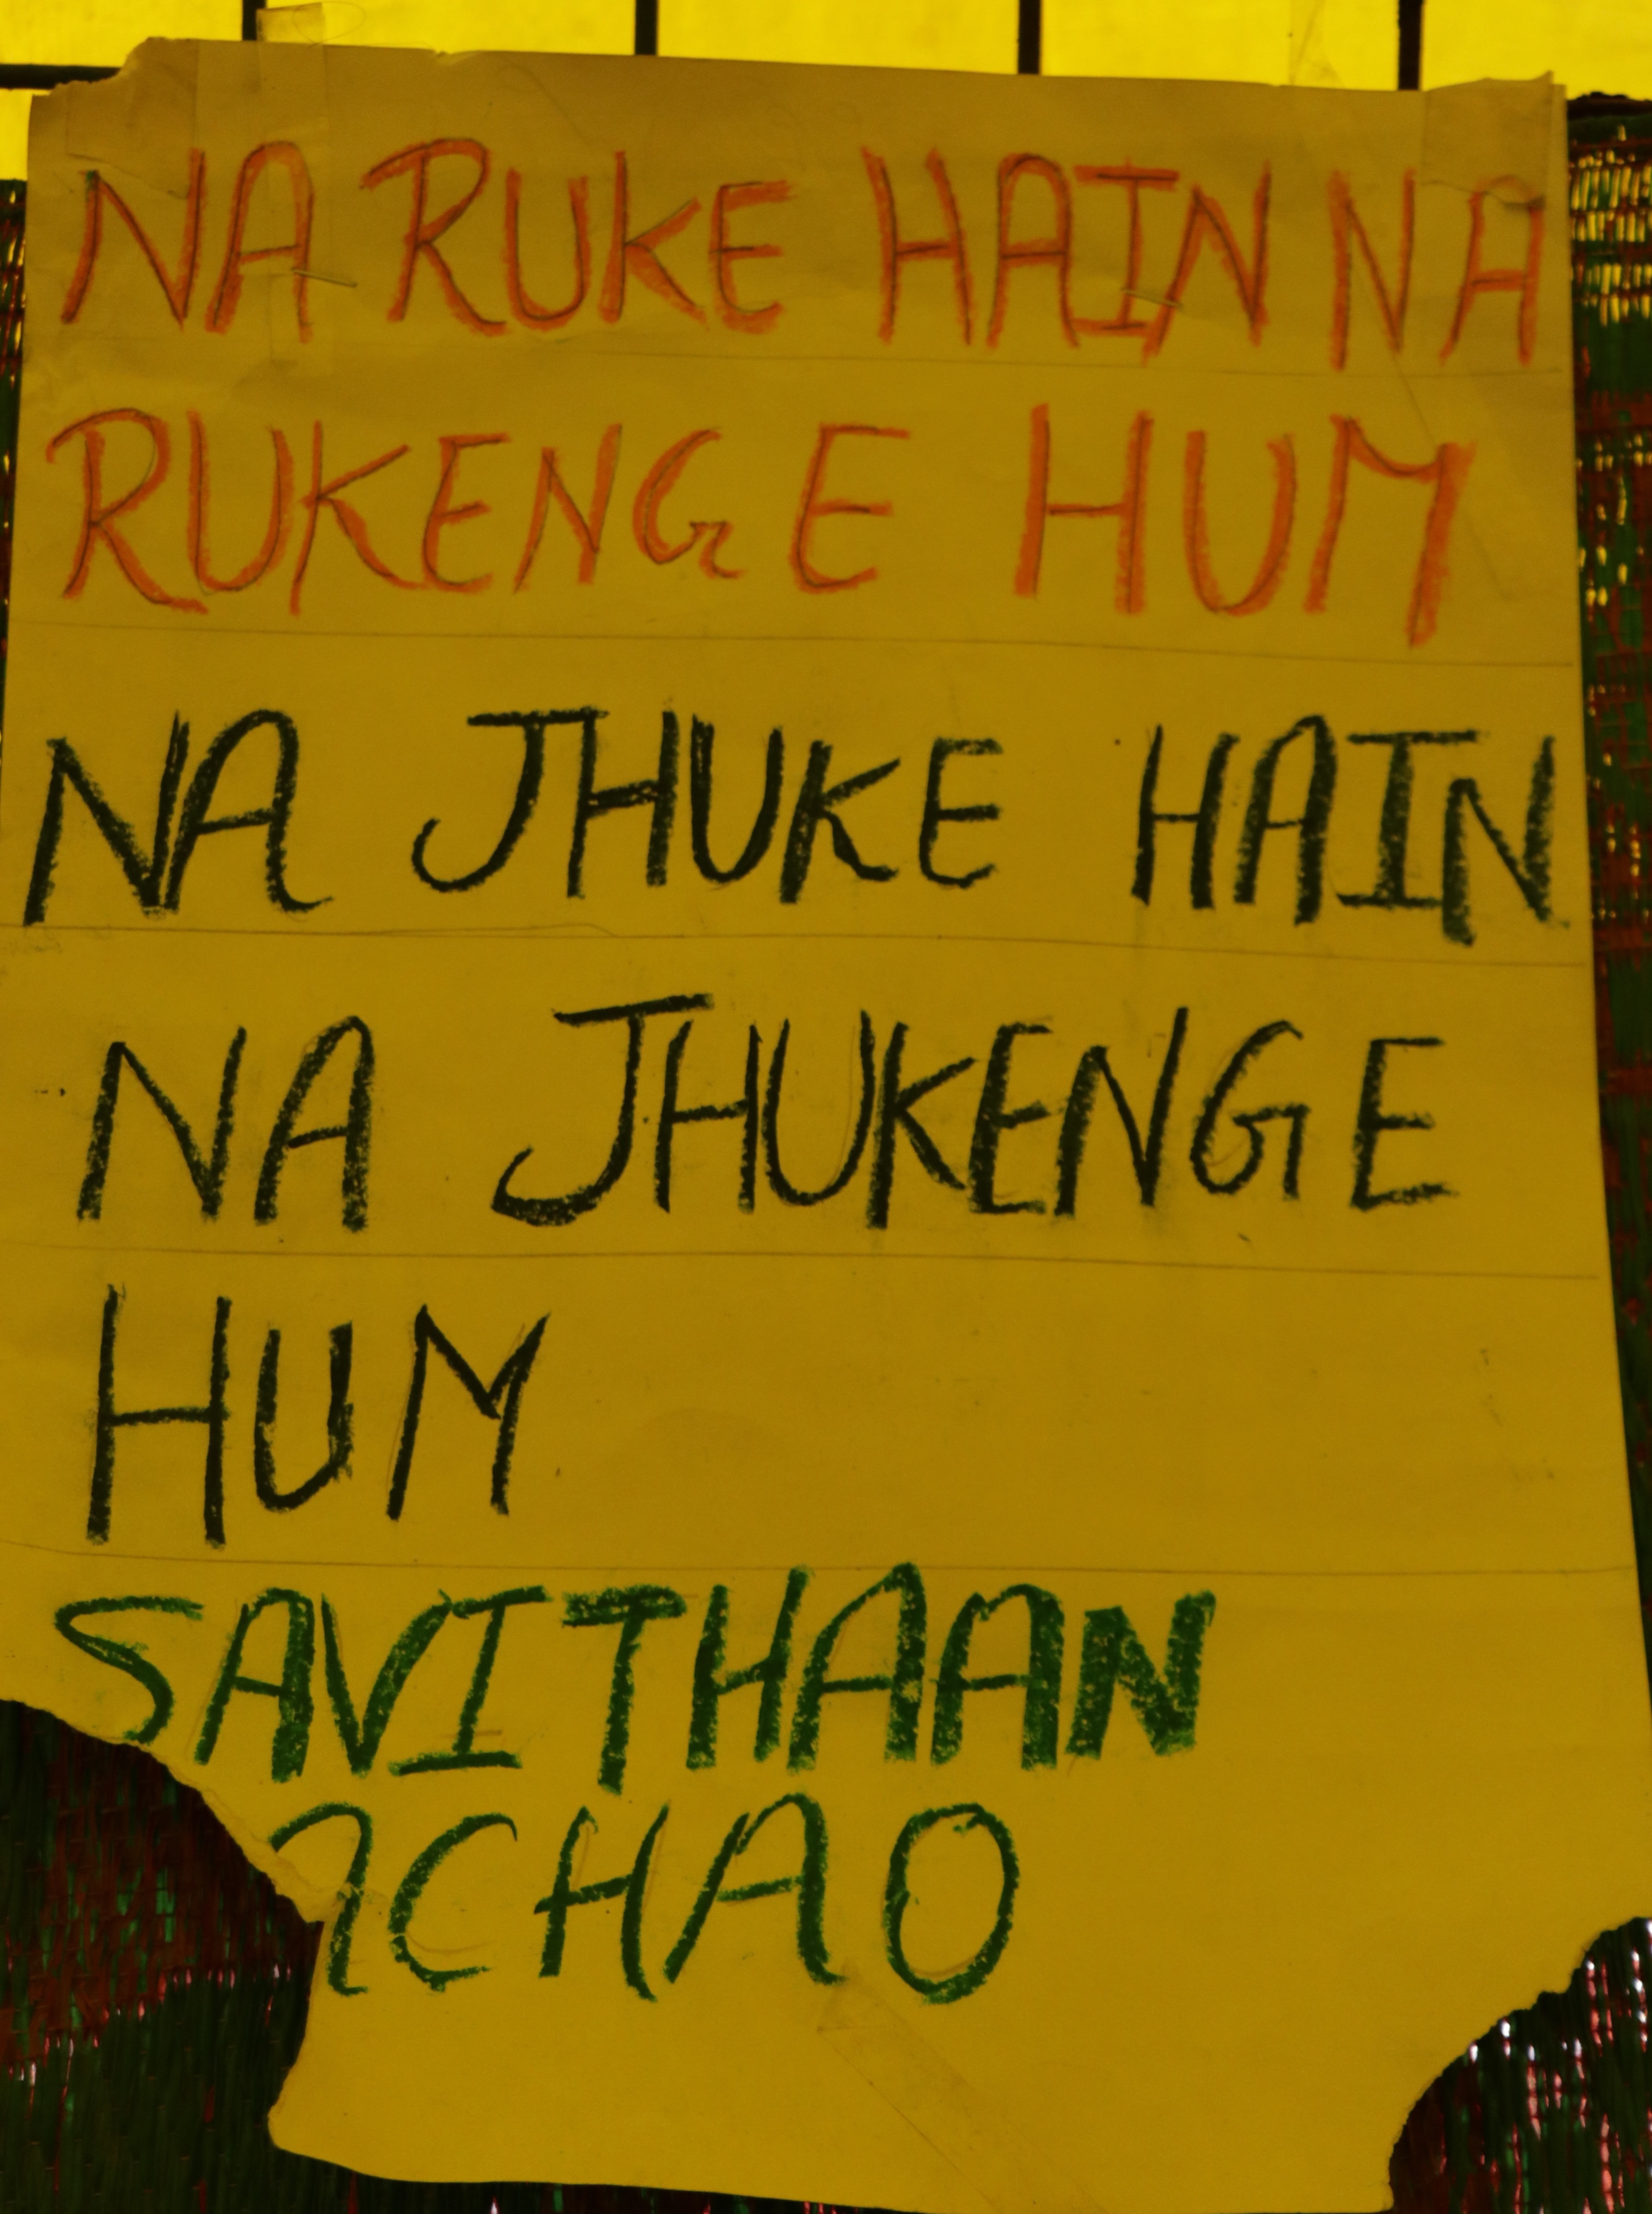 NA RUKE HAIN NA
RUKENGE HUM
NA JHUKE HAIN
NA JHUKENGE
HUM
SAVITHAAN
ACHAO